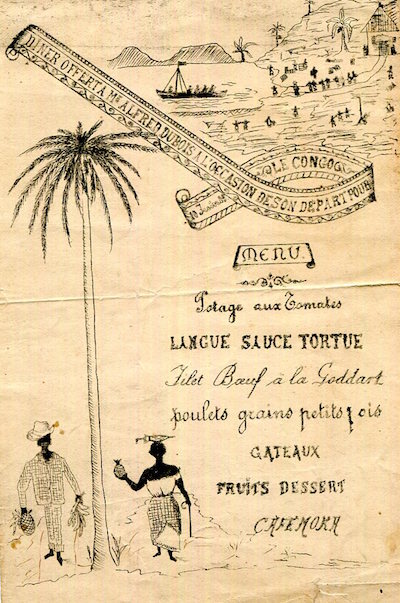 DINER OFFERT A Mr ALFRED DUBOIS A L'OCCASION DE SON DEPART POUR
LE CONGO
MENU.
Potage aux Tomates
LANGUE SAUCE TORTUE
Filet Bœuf à la Goddart
poulets grains petits pois
GATEAUX
FRUITS DESSERT
CAFE MOKA